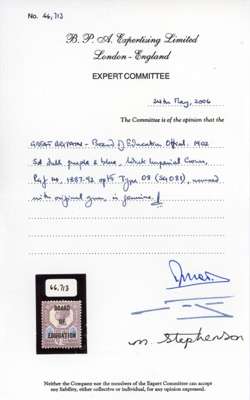 No. 46,713
B. P. A. Expertising Limited
London - England
EXPERT COMMITTEE
24th May, 2006
The Committee is of the opinion that the
GREAT BRITAIN - Board of Education Official. 1902
5d dull purple & blue, Wmk Imperial Crown,
1887-92 optd Type O8 (SG O81), unused
with original gum is genuine.
46,713
BOARD
OF
EDUCATION
M. Stephenson
Neither the Company nor the members of the Expert Committee can accept
any liability, either collective or individual, for any opinion expressed.